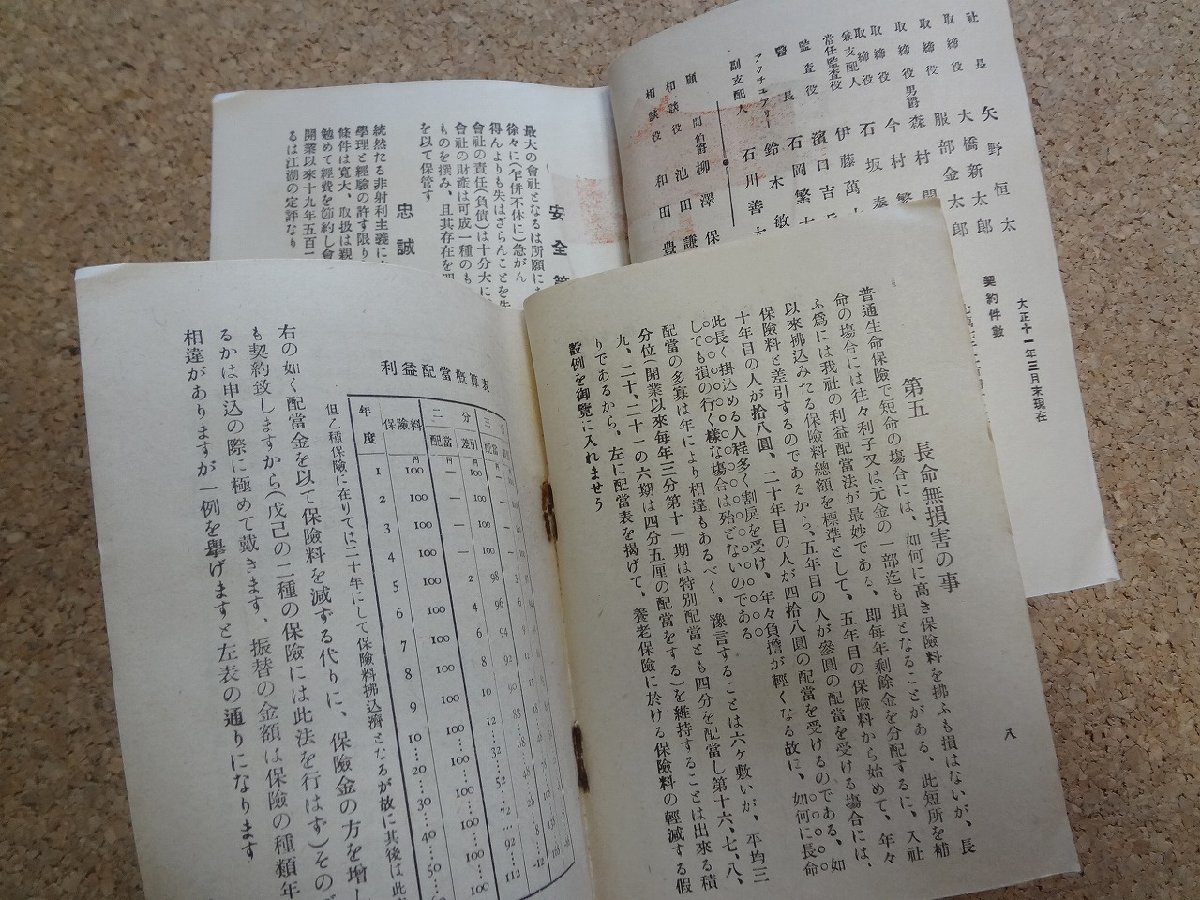 第五 長命無損害の事
普通生命保險で短命の塲合には、如何に高き保險料を拂ふも損はないが、長
命の塲合には往々利子又は元金の一部迄も損となることがある、此短所を補
ふ爲には我社の利益配當法が最妙である、即毎年剩餘金を分配するに、入社
以來拂込みたる保險料總額を標準として、五年目の保險料から始めて、年々
保險料と差引するのであるから、五年目の人が參圓の配當を受ける塲合には、
十年目の人が拾八圓、二十年目の人が四拾八圓の配當を受けるのである、如
此長く掛込める人程多く割戻を受け、年々負擔が輕くなる故に、如何に長命
しても損の行く樣な塲合は殆どないのである
配當の多寡は年により相違もあるべく、豫言することは六ヶ敷いが、平均三
分位(開業以來毎年三分第十一期は特別配當とも四分を配當し第十六、七、八、
九、二十、二十一の六期は四分五厘の配當をする)を維持することは出來る積
りであるから、左に配當表を揭げて、養老保險に於ける保險料の輕減する假
設例を御覽に入れませう
八
利益配當槪算表
年度
保險料
二分
配當
差引
三
配當
1
100
2
100
3
100
4
100
5
100
2
98
6
100
4
96
7
100
6
94
8
100
8
92
9
100
10
90
10
100
12
88
20
100
32
30
100
52
40
100
50
100
92
100
112
但シ積保險に在りては二十年にして保險料拂込濟となるが故に其後は此
右の如く配當金を以て保險料を減する代りに、保險金の方を增し
も契約致しますから(戊己の二種の保險には此法を行はず)その
るかは申込の際に極めて戴きます、振替の金額は保險の種類年
相違がありますが一例を擧げますと左表の通りになります
社長 矢野恒太
取締役 大橋新太郎
取締役 服部金太郎
取締役 男爵 森村開
取締役 今村繁
取締役 石坂泰
兼支配人 伊藤萬
常任監査役 濱口吉
監査役 石岡繁
醫長 鈴木敏
アクチユアリー
副支配人 石川善
顧問 伯爵 柳澤保
相談役 池田謙
相談役 和田豊
大正十一年三月末現在
契約件數
安全
最大の會社となるは所願に
徐々に(乍併不休に)急がん
得んよりも失はざらんことを
會社の責任(負債)は十分大に
會社の財產は可成一種のも
ものを撰み、且其存在を
を以て保管す
忠誠
統然たる非射利主義に
學理と經驗の許す限り
條件は寬大、取扱は親
勉めて經費を節約し會
開業以來十九年五百二
るは江湖の定評なり